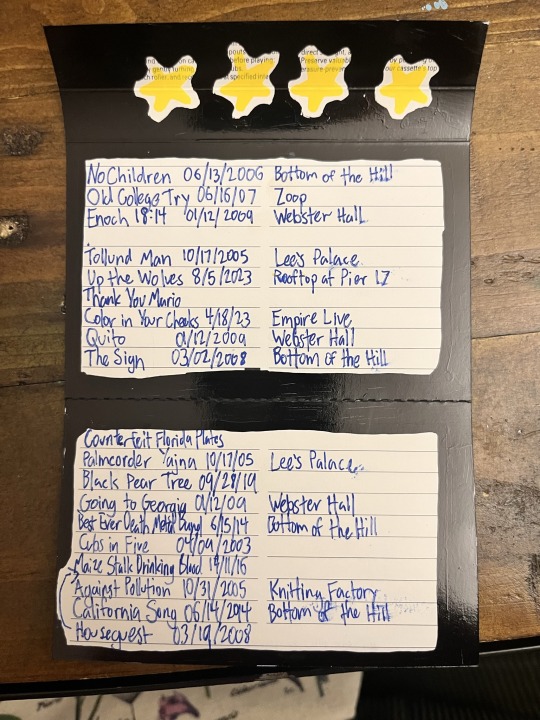 No Children 06/13/2006 Bottom of the Hill
Old College Try 06/16/07 Zoop
Enoch 18:14 01/12/2009 Webster Hall
Tollund Man 10/17/2005 Lee's Palace
Up the Wolves 8/5/2023 Rooftop at Pier 17
Thank You Mario
Color in Your Cheeks 4/18/23 Empire Live
Quito 01/12/2009 Webster Hall
The Sign 03/02/2008 Bottom of the Hill
Counterfeit Florida Plates
Palmcorder Yajna 10/17/05 Lee's Palace
Black Pear Tree 09/28/19
Going to Georgia 01/12/09 Webster Hall
Best Ever Death Metal Band 6/5/14 Bottom of the Hill
Cubs in Five 04/09/2003
Maize Stalk Drinking Blood
Against Pollution 10/31/2005 Knitting Factory
California Song 06/14/2014 Bottom of the Hill
Houseguest 03/19/2008